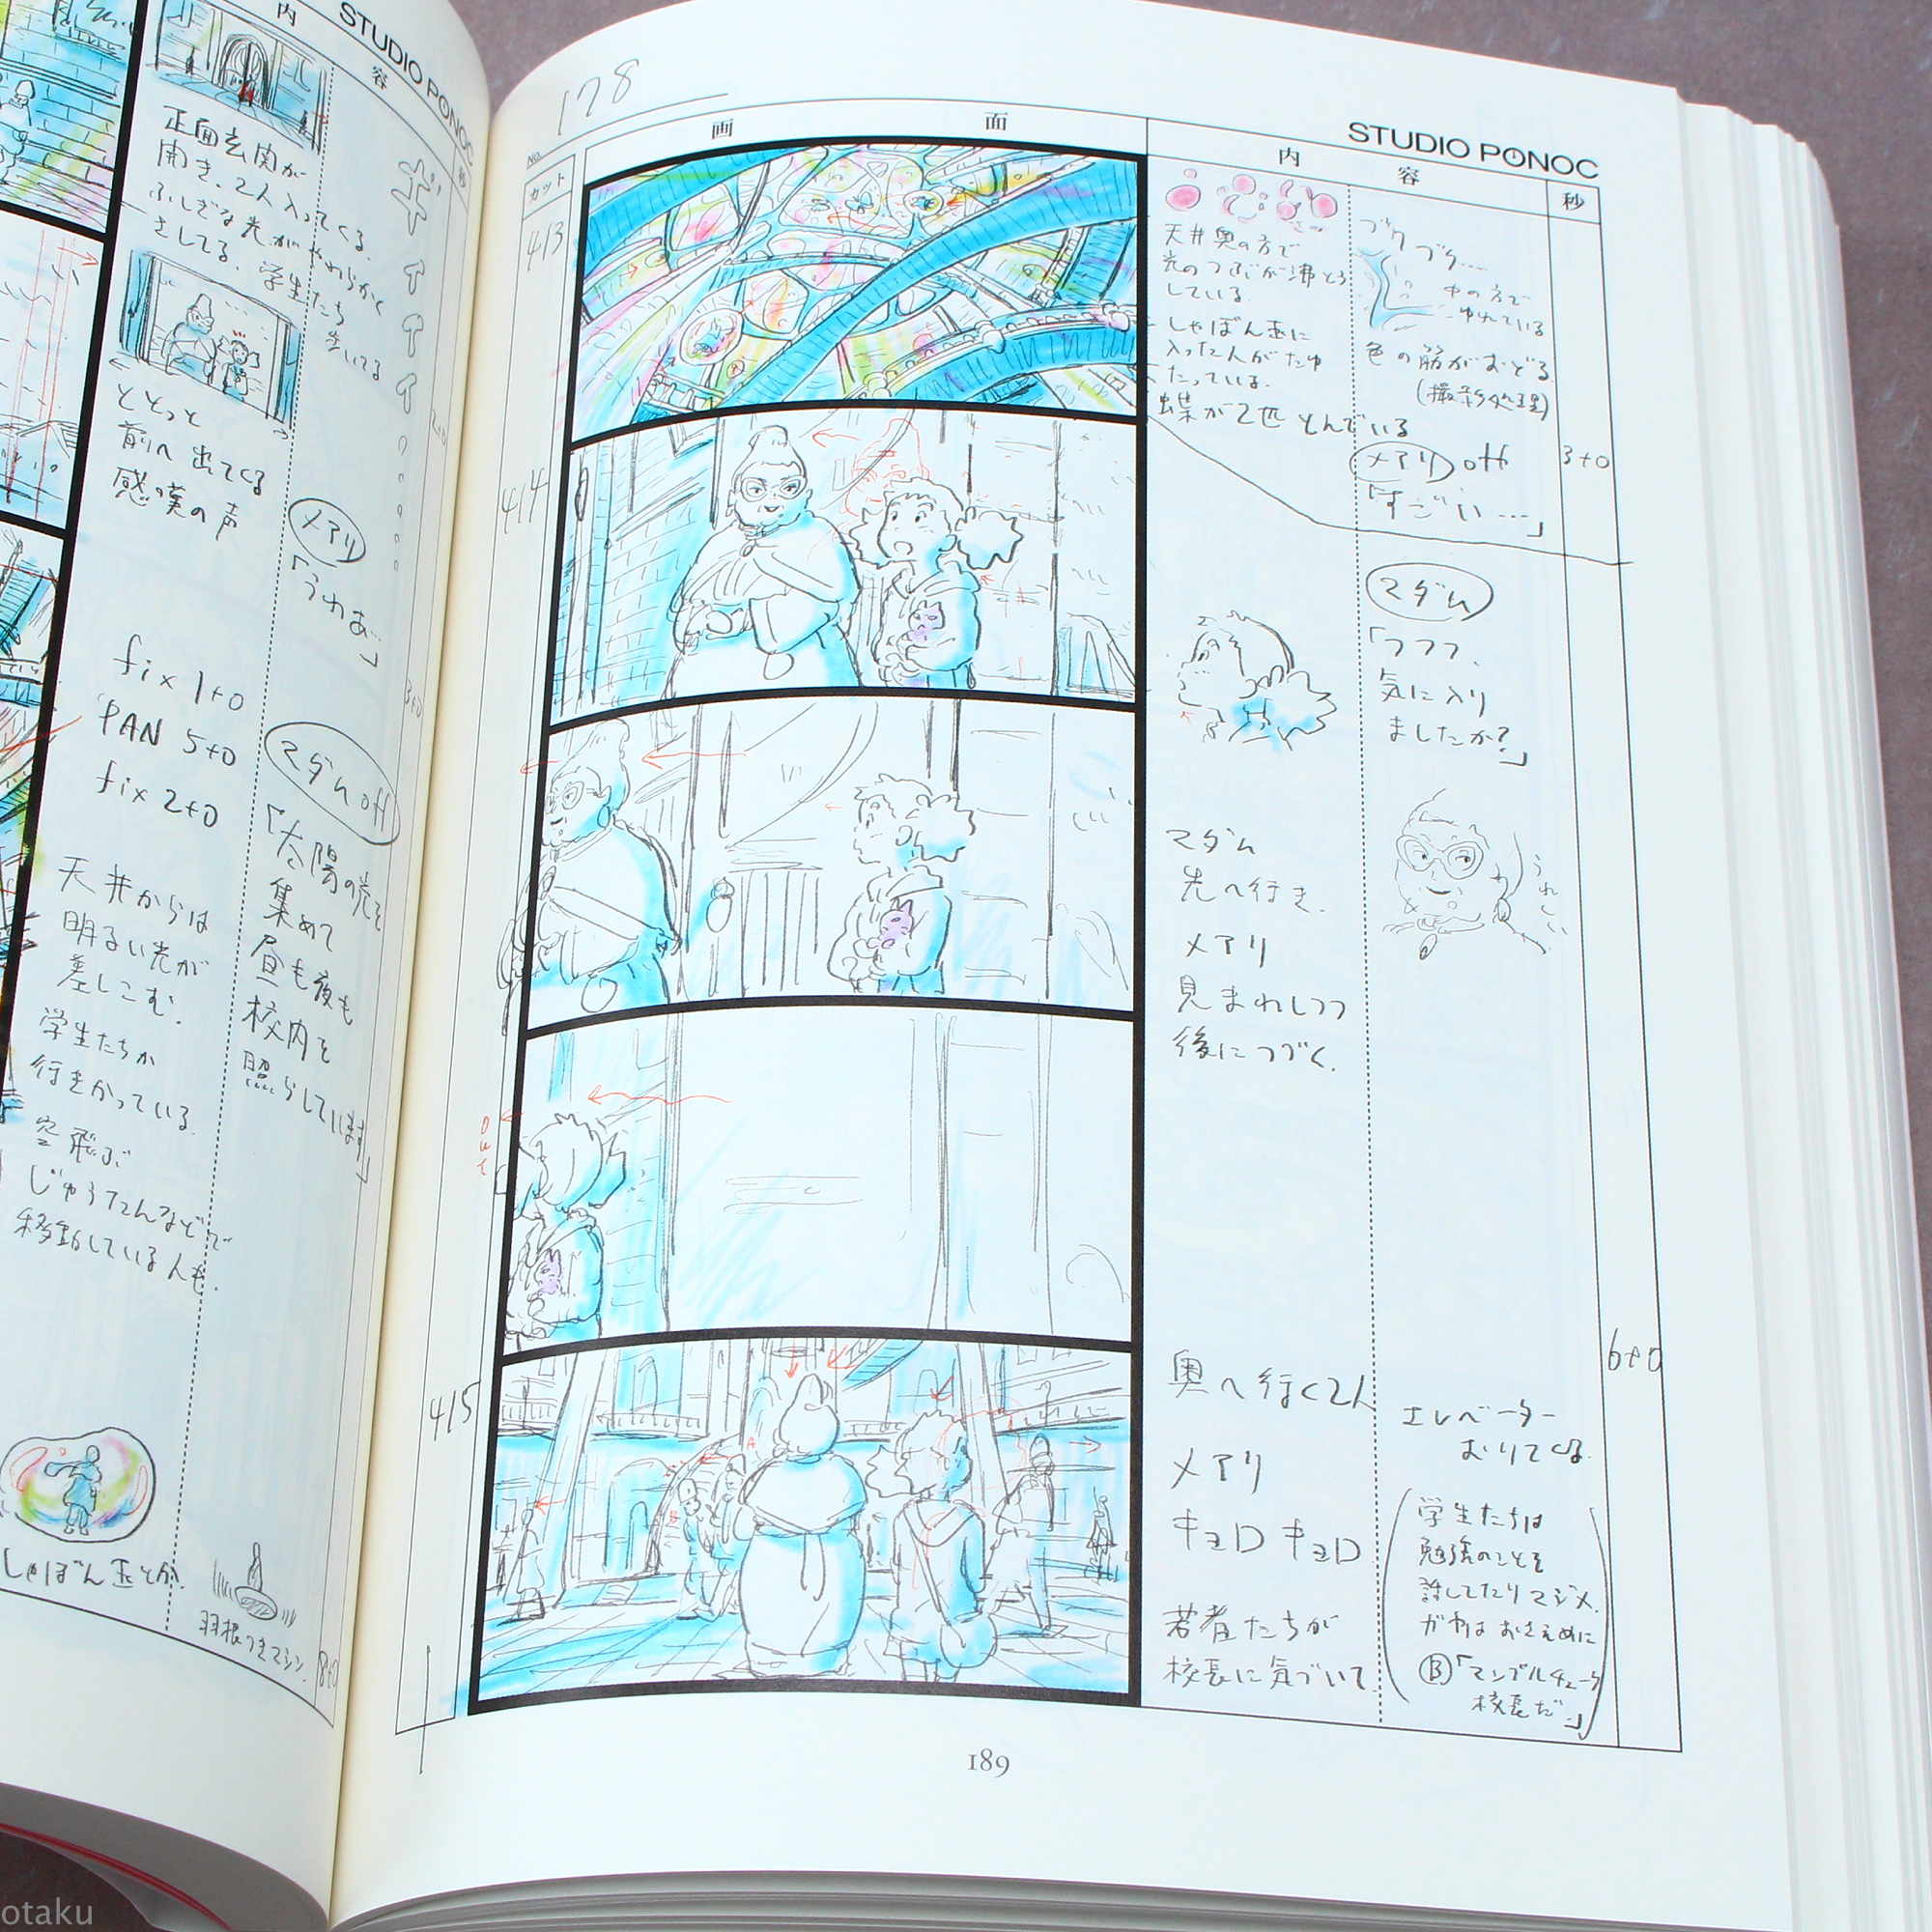 内 容
STUDIO PONOC
秒
正面玄関が
開き、2人入ってくる。
ふしぎな光がやわらかく
さしてる。学生たち
歩いてる
ギイイイイ
2+0
ととっと
前へ出てくる
感嘆の声
メアリ
「うわあ」
3+0
fix 1+0
PAN 5+0
fix 2+0
マダム off
「太陽の光を
集めて
昼も夜も
校内を
照らしています」
天井からは
明るい光が
差しこむ。
学生たちが
行きかっている。
空飛ぶ
じゅうたんなどで
移動している人も。
しゃぼん玉とか。
羽根つきマシン
8+0
178
No.
カット
画 面
内 容
STUDIO PONOC
秒
413
天井奥の方で
光のつぶが沸とう
している。
しゃぼん玉に
入った人がたゆ
たっている。
蝶が2匹とんでいる
ブクブク……
中の方で
ゆれている
色の筋がおどる
(撮影処理)
メアリ off
「すごい…」
3+0
414
マダム
「フフフ、
気に入り
ましたか?」
うれしい
マダム
先へ行き、
メアリ
見まわしつつ
後につづく。
out
6+0
415
奥へ行く2人
メアリ
キョロキョロ
若者たちが
校長に気づいて
エレベーター
おりてくる
学生たちは
勉強のことを
話してたりマジメ。
ガヤはおさえめに
Ⓑ「マンブルチューク
校長だ」
189
otaku